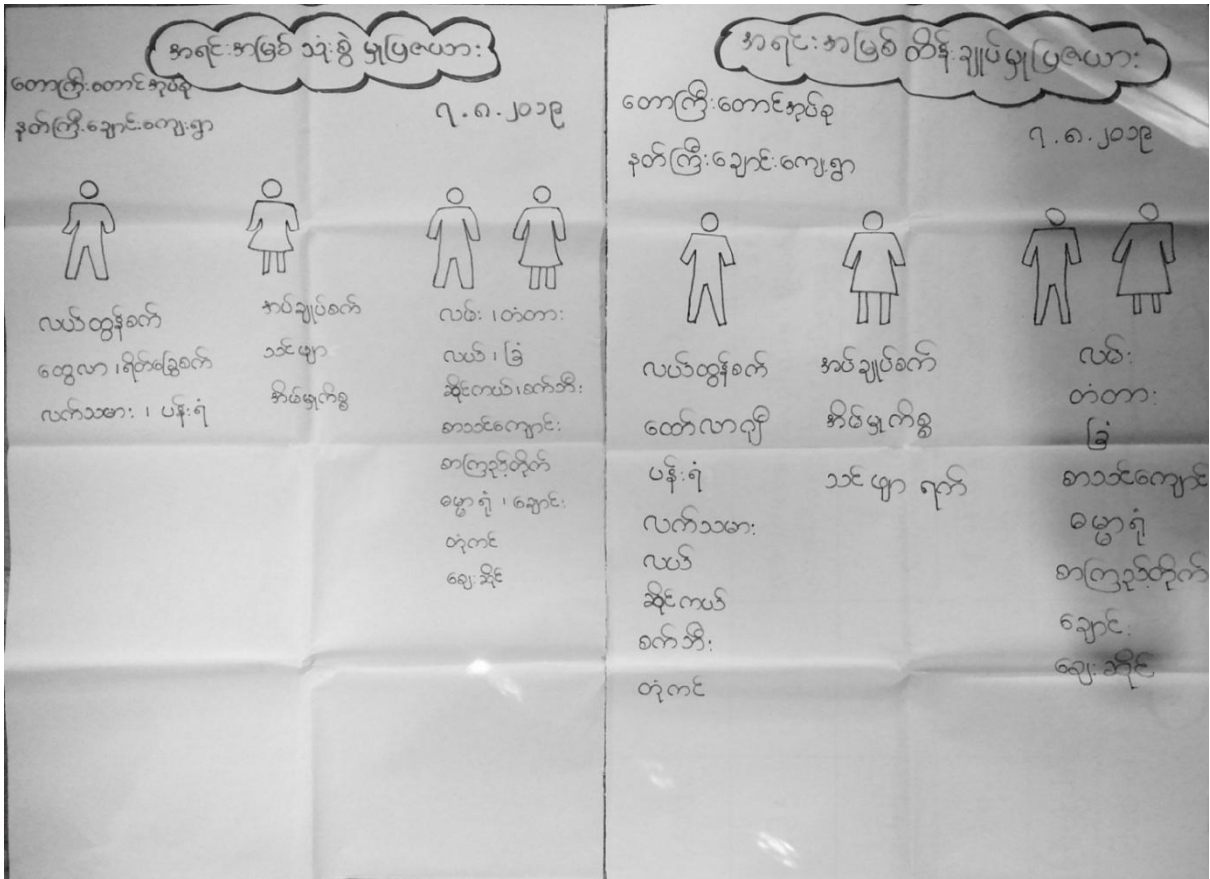 အရင်းအမြစ် သုံးစွဲမှုပြဇယား
တောကြီးတောင်အုပ်စု
နတ်ကြီးချောင်းကျေးရွာ
၇.၈.၂၀၁၉
လယ်ထွန်စက်
ထွေလာ၊ရိတ်ခြွေစက်
လက်သမား ၊ ပန်းရံ
အပ်ချုပ်စက်
သင်ဖျာ
အိမ်မှုကိစ္စ
လမ်း ၊တံတား
လယ် ၊ ခြံ
ဆိုင်ကယ်၊စက်ဘီး
စာသင်ကျောင်း
စာကြည့်တိုက်
ဓမ္မာရုံ ၊ ချောင်း
တုံကင်
ဈေးဆိုင်
အရင်းအမြစ် ထိန်းချုပ်မှုပြဇယား
တောကြီးတောင်အုပ်စု
နတ်ကြီးချောင်းကျေးရွာ
၇.၈.၂၀၁၉
လယ်ထွန်စက်
ထော်လာဂျီ
ပန်းရံ
လက်သမား
လယ်
ဆိုင်ကယ်
စက်ဘီး
တုံကင်
အပ်ချုပ်စက်
အိမ်မှုကိစ္စ
သင်ဖျာ ရက်
လမ်း
တံတား
ခြံ
စာသင်ကျောင်
ဓမ္မာရုံ
စာကြည့်တိုက်
ချောင်း
ဈေးဆိုင်